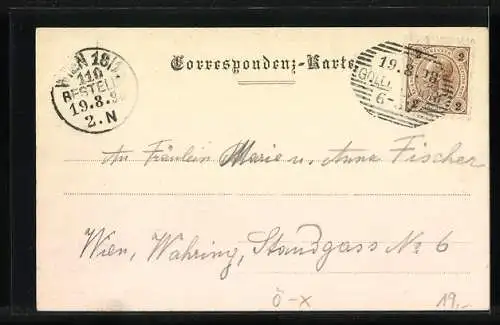 WIEN 18/1
110
BESTELLT
19.8.9
2.N
Correspondenz-Karte
19.8.98
6-
2 2
An Fräulein Marie u. Anna Fischer
Wien, Währing, Standgass No 6
Ö-X 19,-